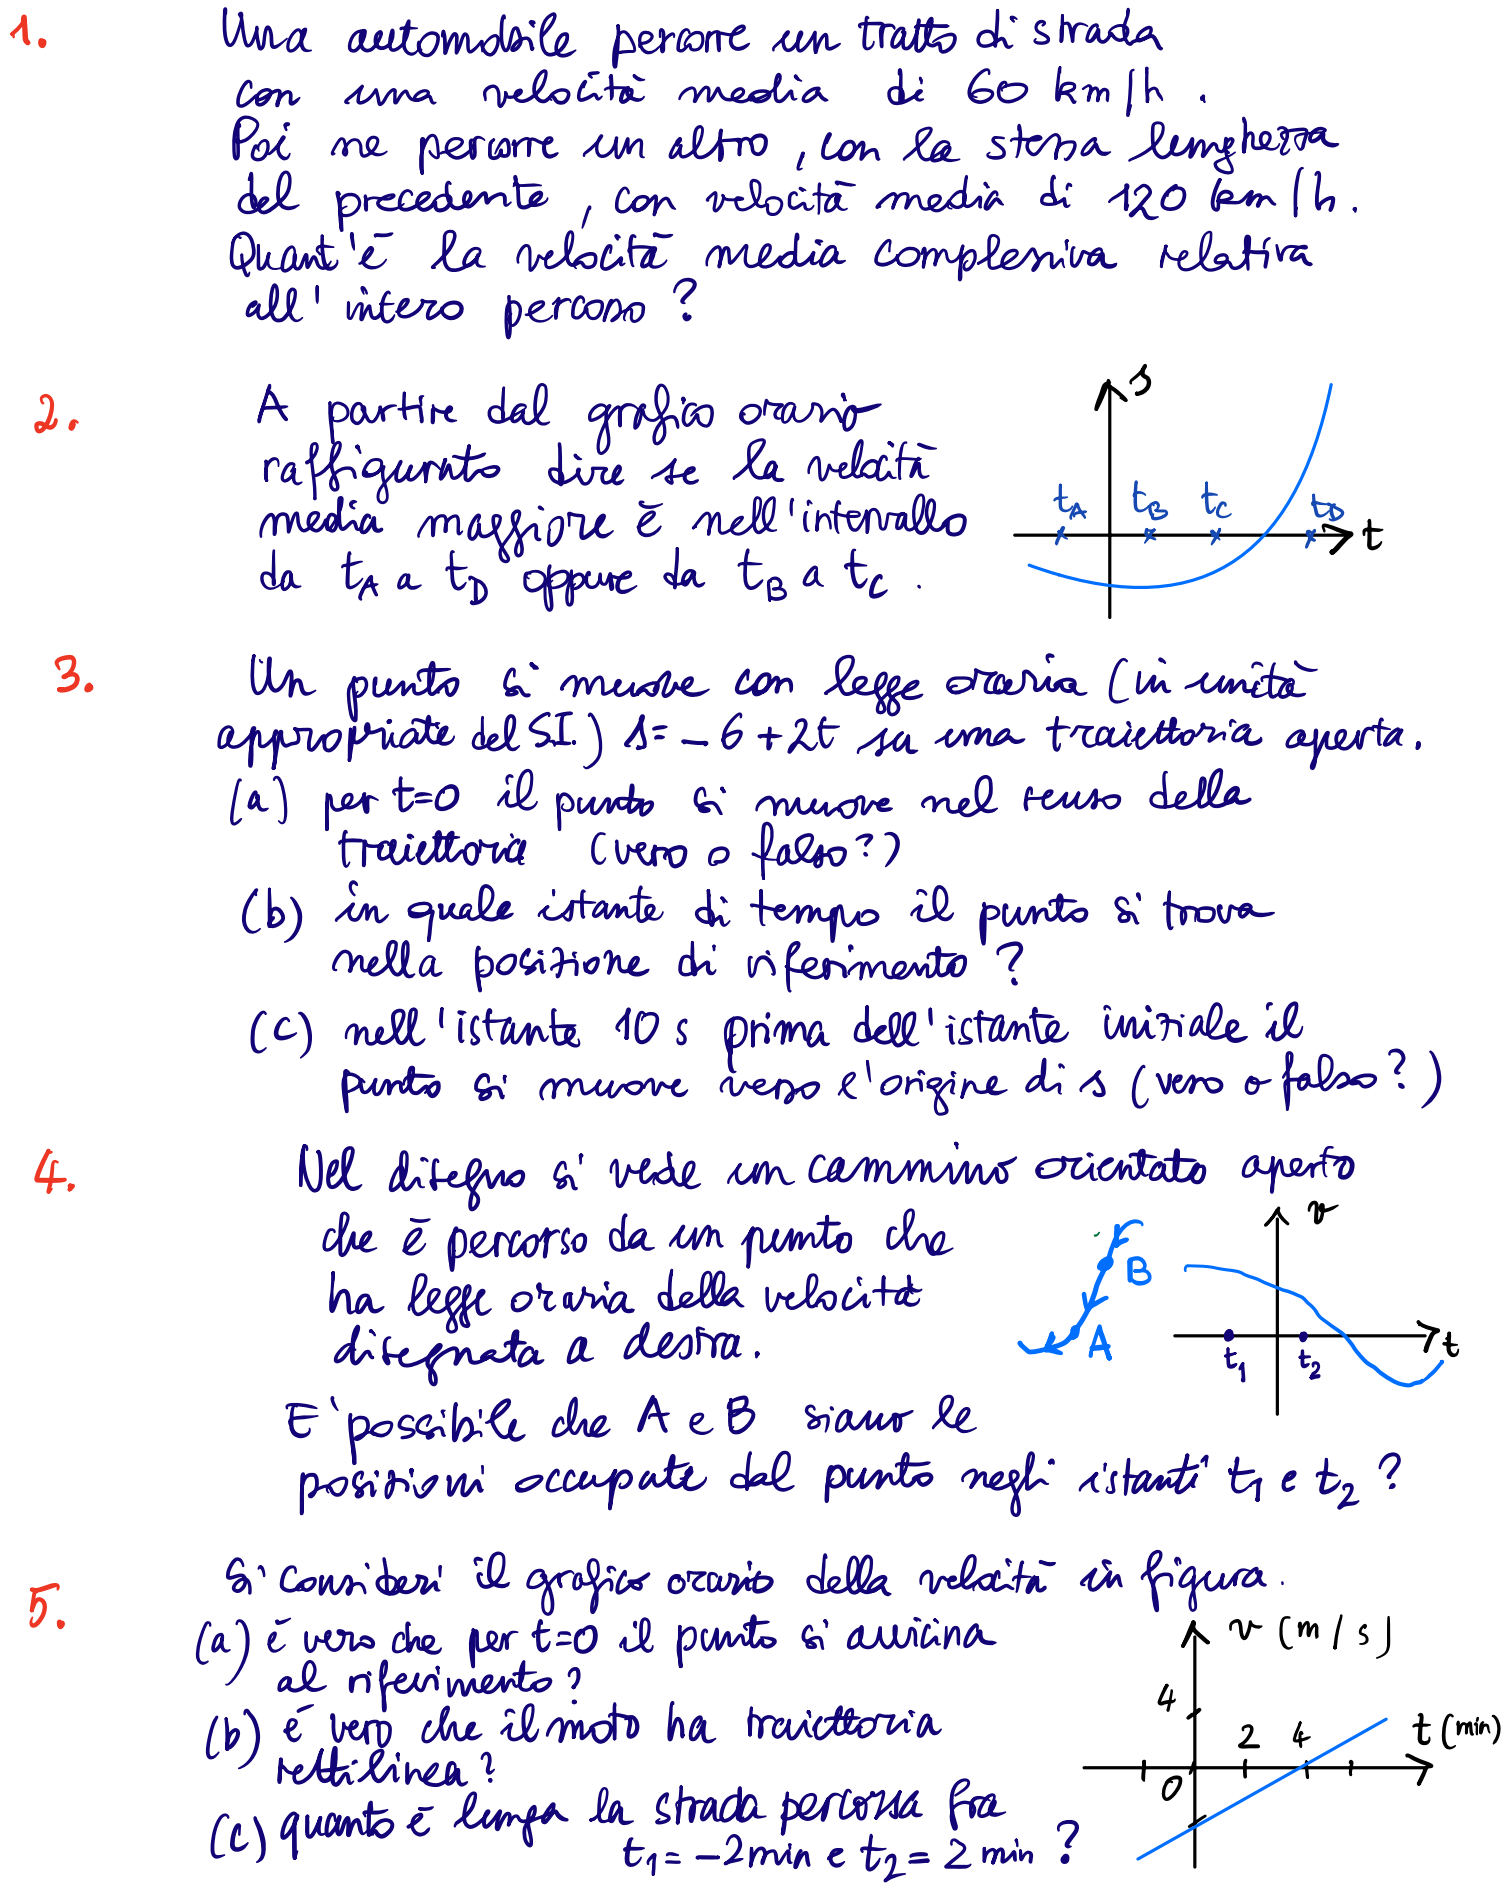 1. Una automobile percorre un tratto di strada
con una velocità media di 60 km/h.
Poi ne percorre un altro, con la stessa lunghezza
del precedente, con velocità media di 120 km/h.
Quant'è la velocità media complessiva relativa
all'intero percorso?
2. A partire dal grafico orario
raffigurato dire se la velocità
media maggiore è nell'intervallo
da tA a tD oppure da tB a tC.
s
tA tB tC tD
t
3. Un punto si muove con legge oraria (in unità
appropriate del S.I.) s = -6 + 2t su una traiettoria aperta.
(a) per t=0 il punto si muove nel senso della
traiettoria (vero o falso?)
(b) in quale istante di tempo il punto si trova
nella posizione di riferimento?
(c) nell'istante 10 s prima dell'istante iniziale il
punto si muove verso l'origine di s (vero o falso?)
4. Nel disegno si vede un cammino orientato aperto
che è percorso da un punto che
ha legge oraria della velocità
disegnata a destra.
B
A
v
t
t1 t2
E' possibile che A e B siano le
posizioni occupate dal punto negli istanti t1 e t2?
5. Si consideri il grafico orario della velocità in figura.
(a) è vero che per t=0 il punto si avvicina
al riferimento?
(b) è vero che il moto ha traiettoria
rettilinea?
(c) quanto è lunga la strada percorsa fra
t1 = -2 min e t2 = 2 min?
v (m/s)
4
2 4 t (min)
0